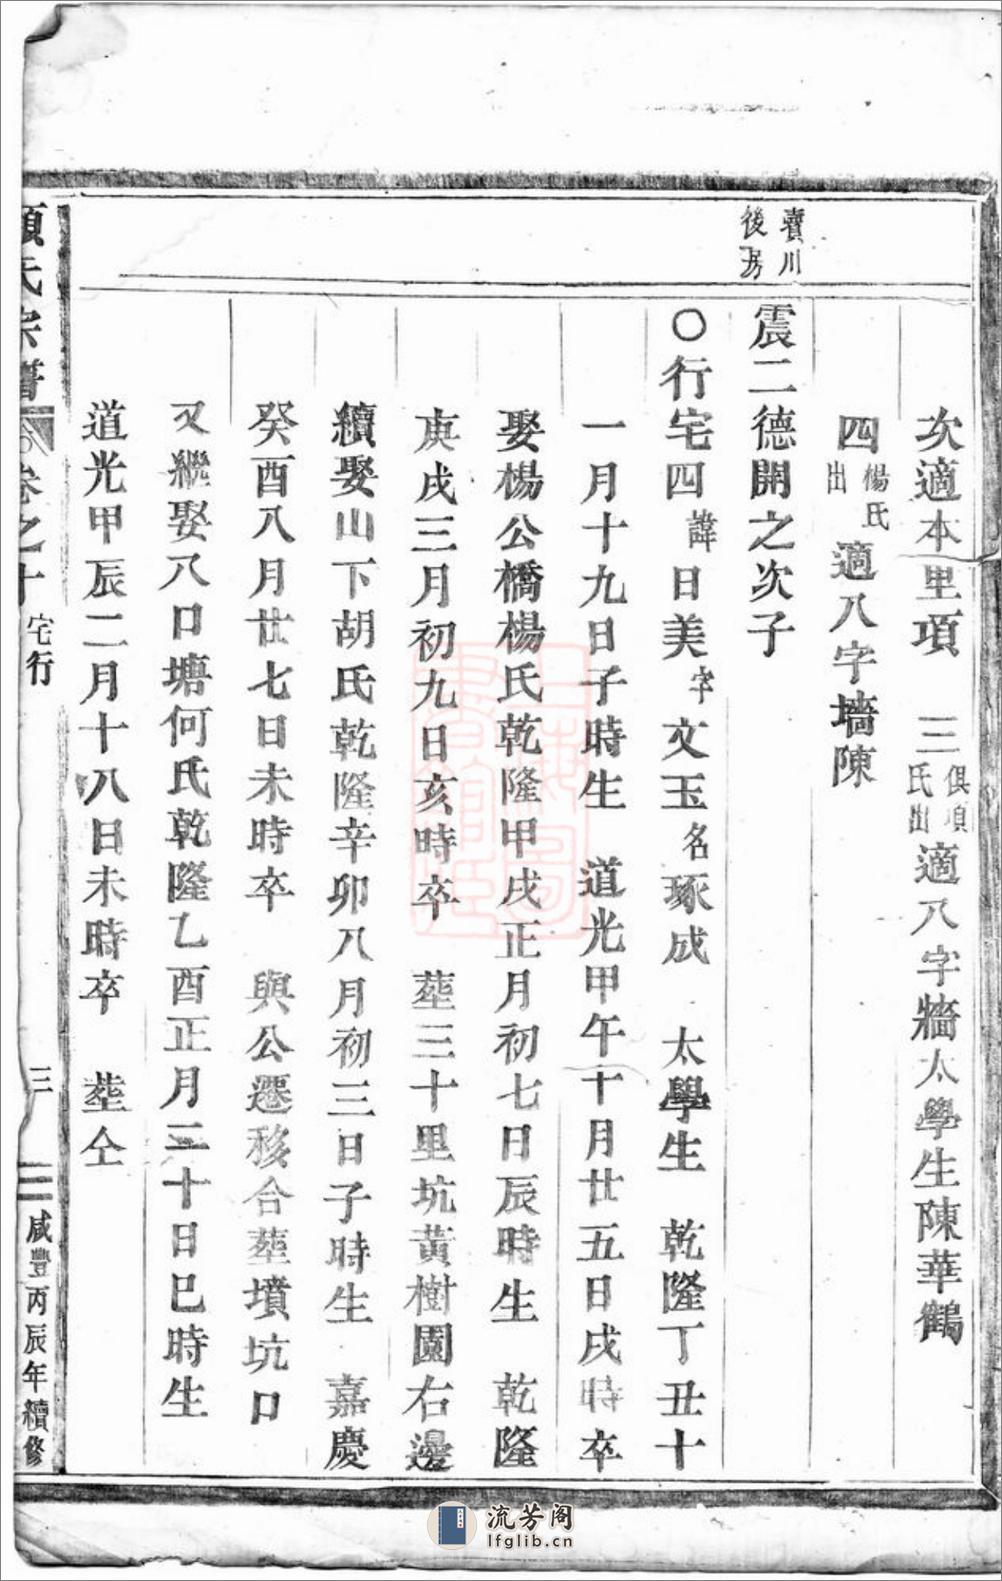 賣川
後房
次適本里項 三俱項氏出適八字牆太學生陳華鶴
四楊氏出適八字墻陳
震二德開之次子
○行宅四諱日美字文玉名琢成 太學生 乾隆丁丑十
一月十九日子時生 道光甲午十月廿五日戌時卒
娶楊公橋楊氏乾隆甲戌正月初七日辰時生 乾隆
庚戌三月初九日亥時卒 塟三十里坑黃樹園右邊
續娶山下胡氏乾隆辛卯八月初三日子時生 嘉慶
癸酉八月廿七日未時卒 與公遷移合塟墳坑口
又繼娶八口塘何氏乾隆乙酉正月二十日巳時生
道光甲辰二月十八日未時卒 塟仝
項氏宗譜 卷之十 宅行 三 咸豐丙辰年續修
流芳阁
lfglib.cn